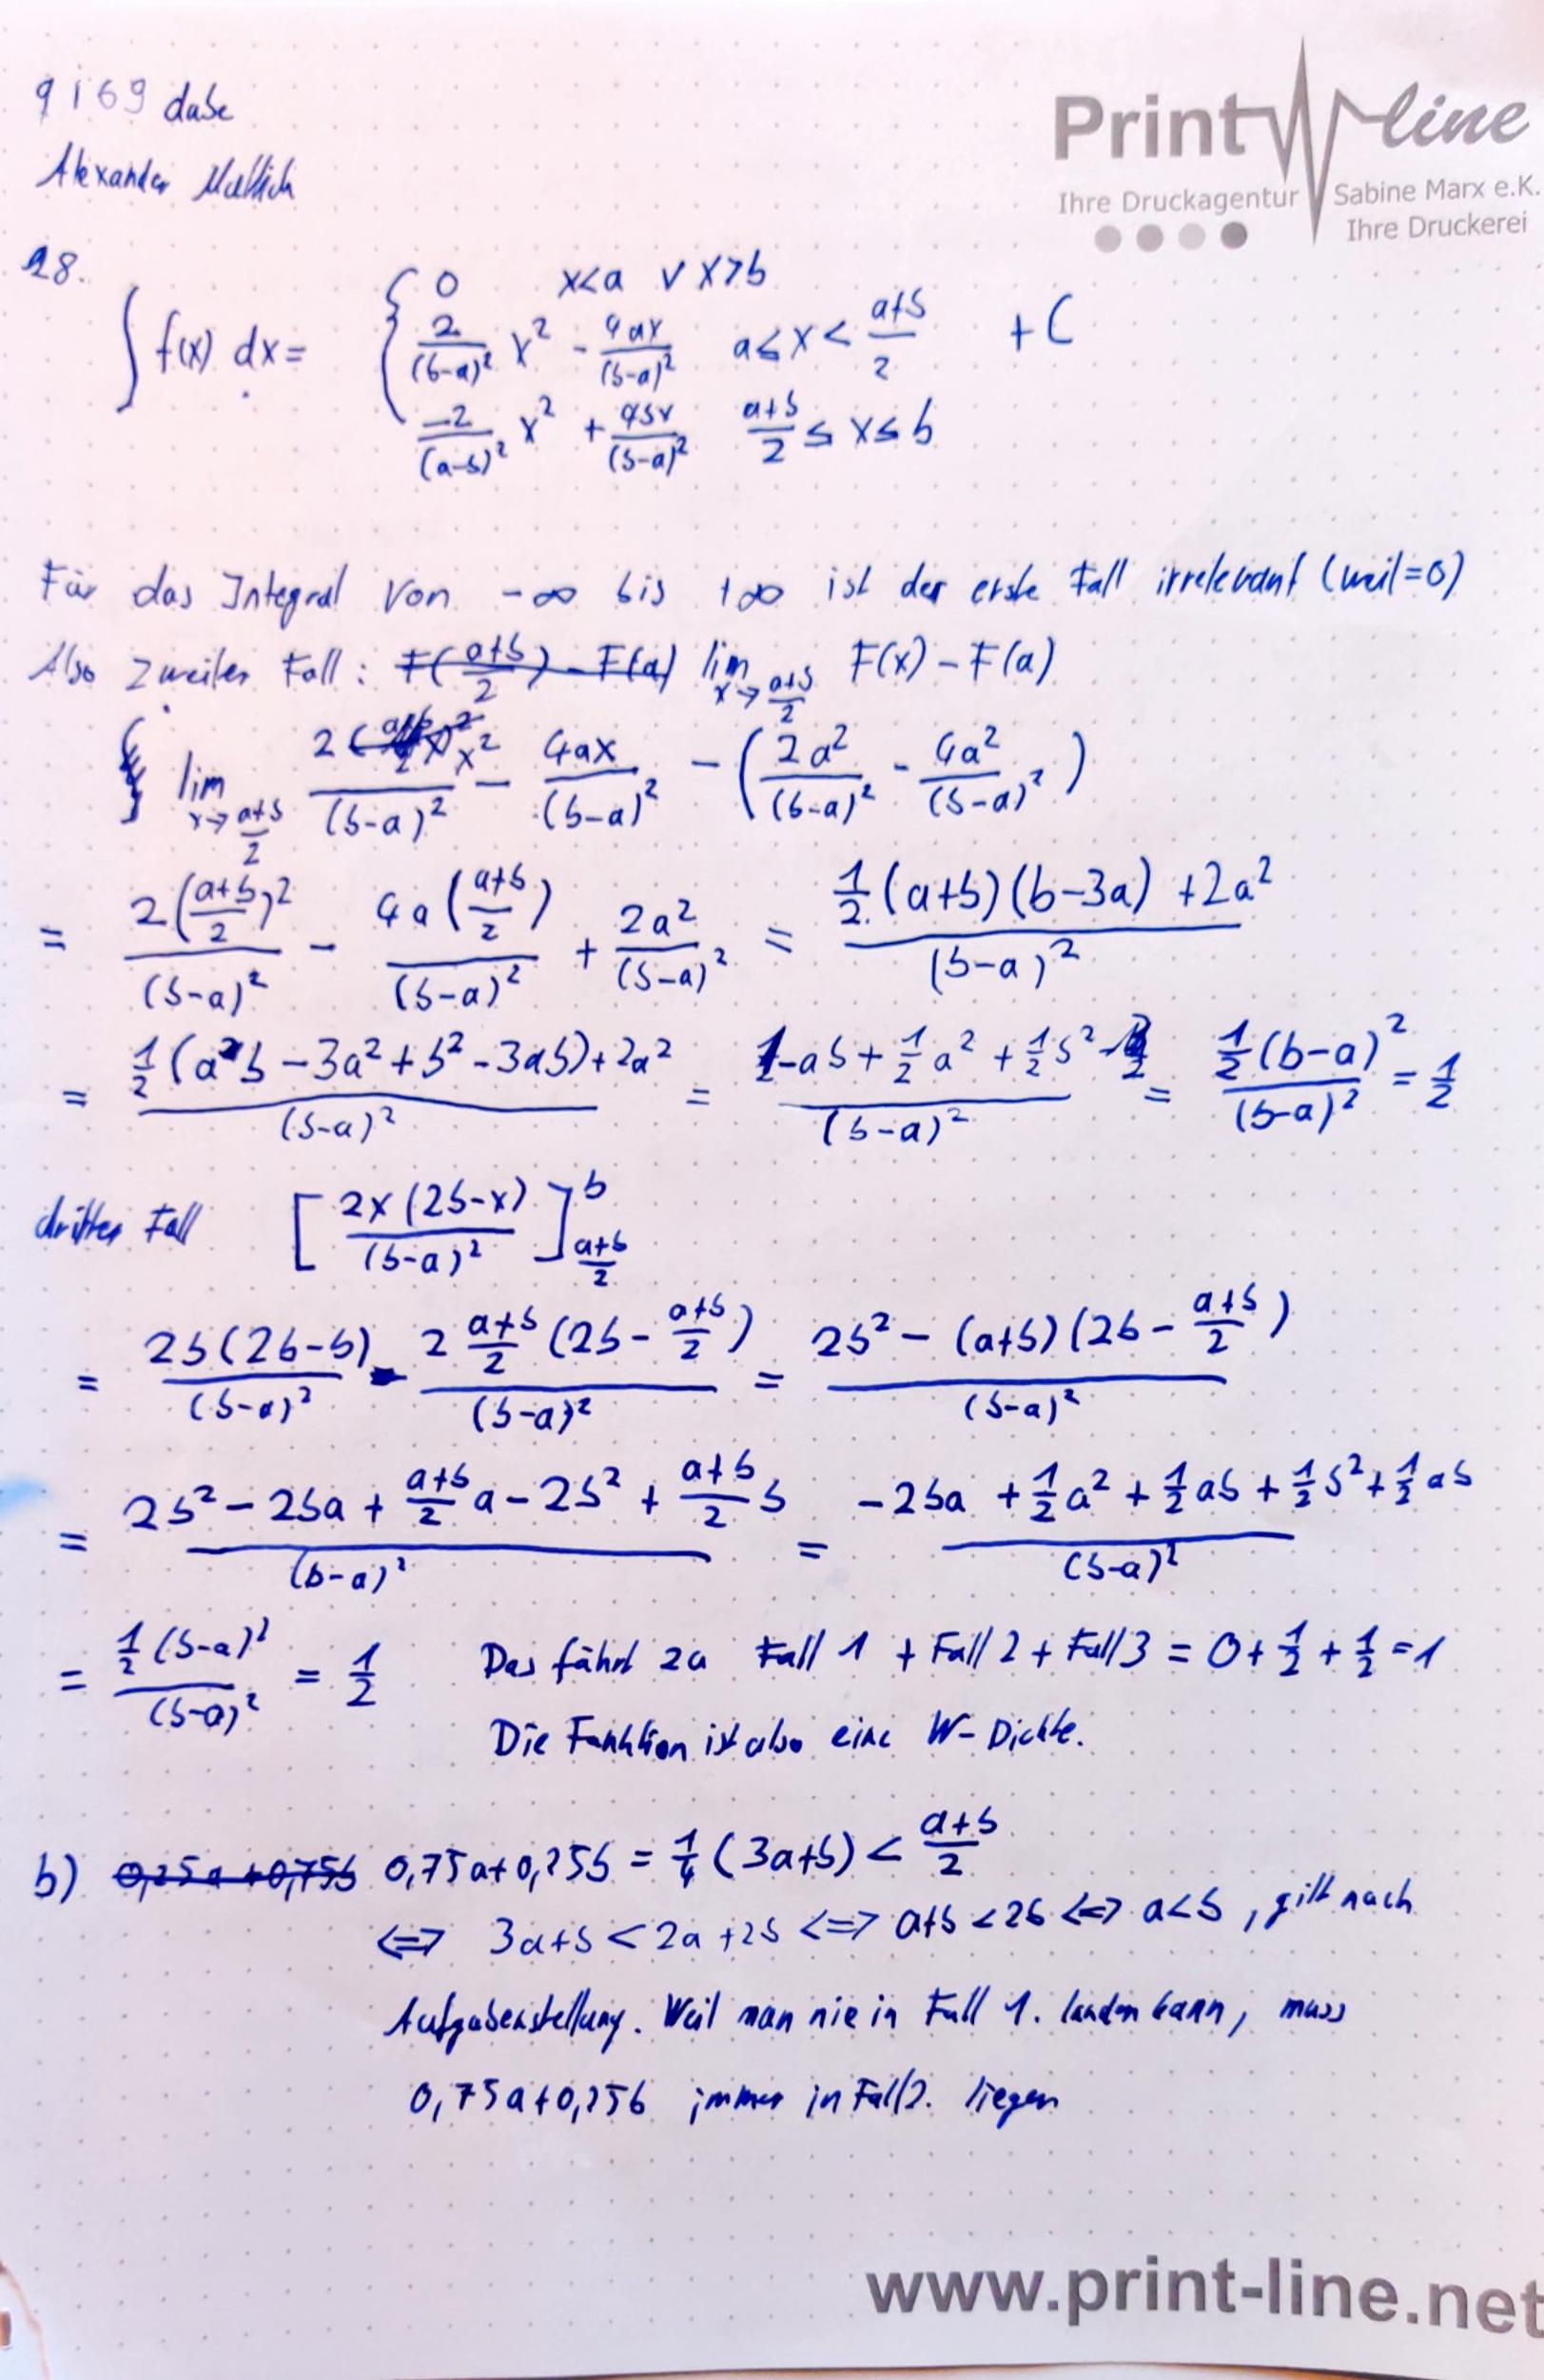 9169 dabe
Alexander
Print line
Ihre Druckagentur Sabine Marx e.K.
Ihre Druckerei
18.
∫ f(x) dx = { 0 x<a ∨ x>b
2/(b-a)² x² - 4ax/(b-a)² a≤x< (a+b)/2 + C
-2/(a-b)² x² + 4bx/(b-a)² (a+b)/2 ≤ x ≤ b
Für das Integral von -∞ bis +∞ ist der erste Fall irrelevant (weil=0)
Also zweiter Fall: F((a+b)/2) - F(a) lim x→(a+b)/2 F(x) - F(a)
lim x→(a+b)/2 2x²/(b-a)² - 4ax/(b-a)² - (2a²/(b-a)² - 4a²/(b-a)²)
= 2((a+b)/2)²/(b-a)² - 4a((a+b)/2)/(b-a)² + 2a²/(b-a)² = (1/2 (a+b)(b-3a) + 2a²)/(b-a)²
= (1/2 (ab - 3a² + b² - 3ab) + 2a²)/(b-a)² = (-ab + 1/2 a² + 1/2 b²)/(b-a)² = 1/2 (b-a)²/(b-a)² = 1/2
dritter Fall [2x(2b-x)/(b-a)²] b (a+b)/2
= 2b(2b-b)/(b-a)² - 2 (a+b)/2 (2b - (a+b)/2)/(b-a)² = (2b² - (a+b)(2b - (a+b)/2))/(b-a)²
= (2b² - 2ba + (a+b)/2 a - 2b² + (a+b)/2 b)/(b-a)² = (-2ba + 1/2 a² + 1/2 ab + 1/2 b² + 1/2 ab)/(b-a)²
= 1/2 (b-a)²/(b-a)² = 1/2 Das führt zu Fall 1 + Fall 2 + Fall 3 = 0 + 1/2 + 1/2 = 1
Die Funktion ist also eine W-Dichte.
b) 0,25a+0,75b 0,75a+0,25b = 1/4 (3a+b) < (a+b)/2
⟺ 3a+b < 2a+2b ⟺ a+b < 2b ⟺ a<b, gilt nach
Aufgabenstellung. Weil man nie in Fall 1. landen kann, muss
0,75a+0,25b immer in Fall 2. liegen
www.print-line.net